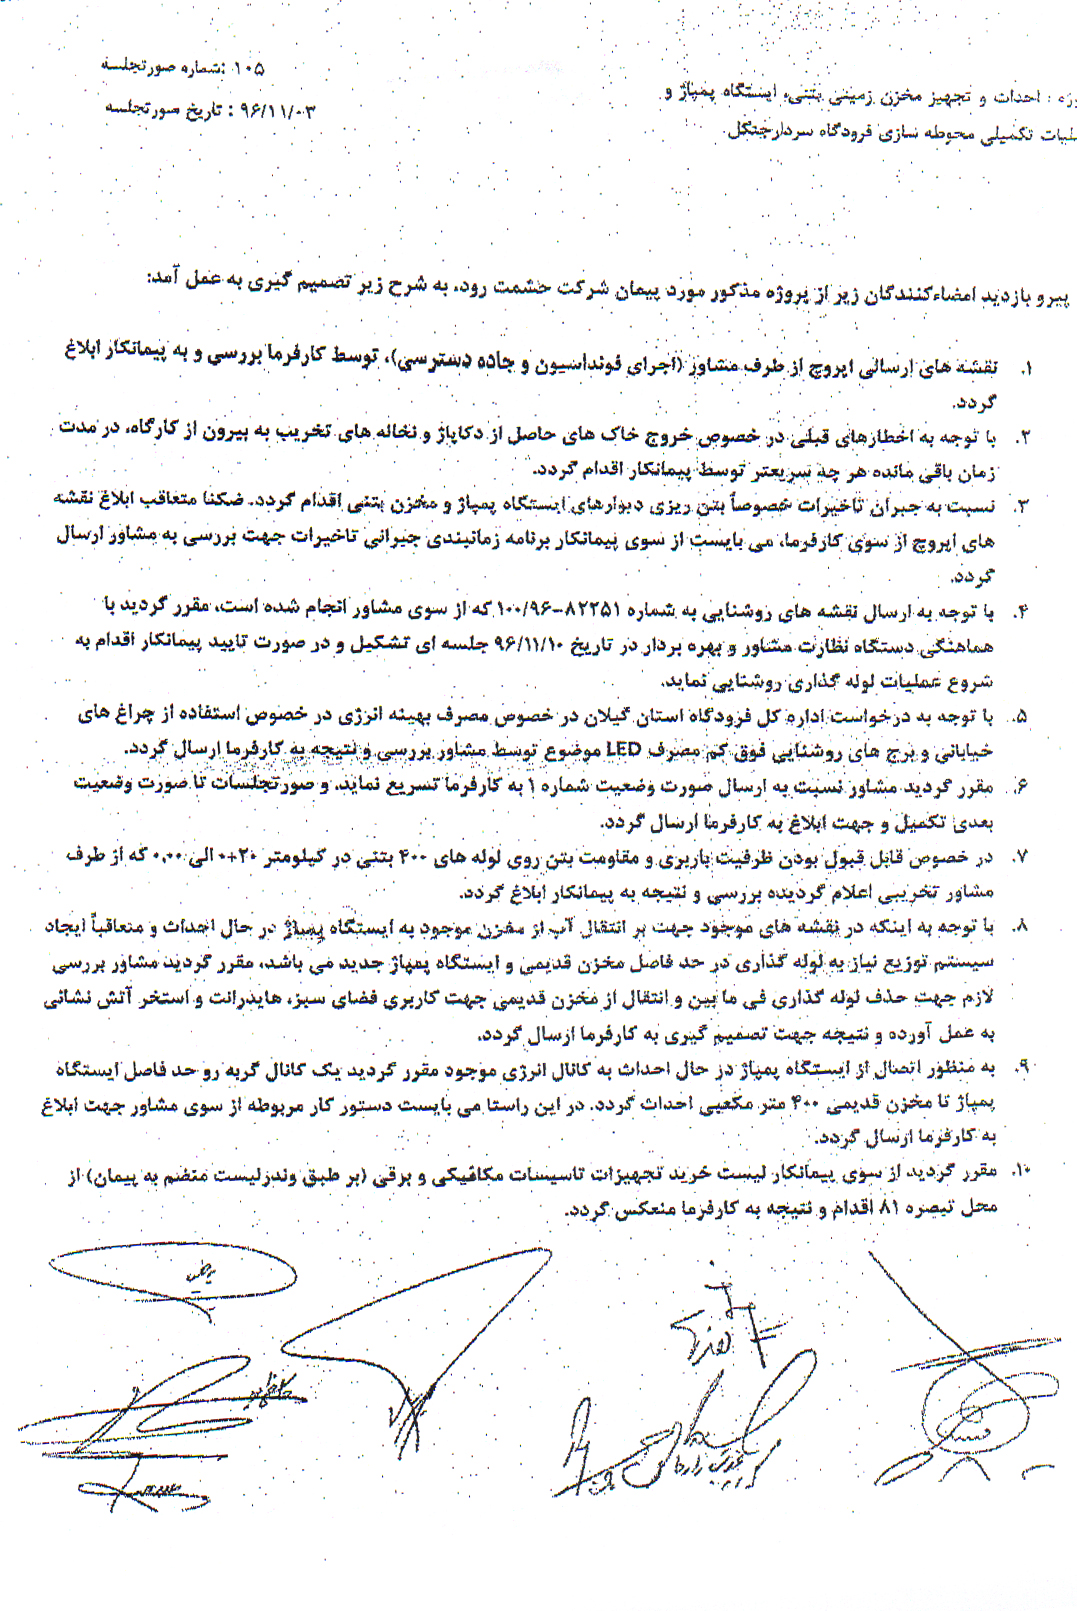 شماره صورتجلسه: ۱۰۵
تاریخ صورتجلسه : ۹۶/۱۱/۰۳
: احداث و تجهیز مخزن زمینی بتنی، ایستگاه پمپاژ و
تکمیلی محوطه سازی فرودگاه سردارجنگل
پیرو بازدید امضاءکنندگان زیر از پروژه مذکور مورد پیمان شرکت حشمت رود، به شرح زیر تصمیم گیری به عمل آمد:
۱. نقشه های ارسالی ایروچ از طرف مشاور (اجرای فونداسیون و جاده دسترسی)، توسط کارفرما بررسی و به پیمانکار ابلاغ
گردد.
۲. با توجه به اخطارهای قبلی در خصوص خروج خاک های حاصل از دکاپاژ و نخاله های تخریب به بیرون از کارگاه، در مدت
زمان باقی مانده هر چه سریعتر توسط پیمانکار اقدام گردد.
۳. نسبت به جبران تاخیرات خصوصاً بتن ریزی دیوارهای ایستگاه پمپاژ و مخزن بتنی اقدام گردد. ضکنا متعاقب ابلاغ نقشه
های ایروچ از سوی کارفرما، می بایست از سوی پیمانکار برنامه زمانبندی جبرانی تاخیرات جهت بررسی به مشاور ارسال
گردد.
۴. با توجه به ارسال نقشه های روشنایی به شماره ۸۲۲۵۱-۱۰۰/۹۶ که از سوی مشاور انجام شده است، مقرر گردید با
هماهنگی دستگاه نظارت مشاور و بهره بردار در تاریخ ۹۶/۱۱/۱۰ جلسه ای تشکیل و در صورت تایید پیمانکار اقدام به
شروع عملیات لوله گذاری روشنایی نماید.
۵. با توجه به درخواست اداره کل فرودگاه استان گیلان در خصوص مصرف بهینه انرژی در خصوص استفاده از چراغ های
خیابانی و برج های روشنایی فوق کم مصرف LED موضوع توسط مشاور بررسی و نتیجه به کارفرما ارسال گردد.
۶. مقرر گردید مشاور نسبت به ارسال صورت وضعیت شماره ۱ به کارفرما تسریع نماید. و صورتجلسات تا صورت وضعیت
بعدی تکمیل و جهت ابلاغ به کارفرما ارسال گردد.
۷. در خصوص قابل قبول بودن ظرفیت باربری و مقاومت بتن روی لوله های ۴۰۰ بتنی در کیلومتر ۲۰+۰ الی ۰,۰۰ که از طرف
مشاور تخریبی اعلام گردیده بررسی و نتیجه به پیمانکار ابلاغ گردد.
۸. با توجه به اینکه در نقشه های موجود جهت بر انتقال آب از مخزن موجود به ایستگاه پمپاژ در حال احداث و متعاقباً ایجاد
سیستم توزیع نیاز به لوله گذاری در حد فاصل مخزن قدیمی و ایستگاه پمپاژ جدید می باشد، مقرر گردید مشاور بررسی
لازم جهت حذف لوله گذاری فی ما بین و انتقال از مخزن قدیمی جهت کاربری فضای سبز، هایدرانت و استخر آتش نشانی
به عمل آورده و نتیجه جهت تصمیم گیری به کارفرما ارسال گردد.
۹. به منظور اتصال از ایستگاه پمپاژ در حال احداث به کانال انرژی موجود مقرر گردید یک کانال گربه رو حد فاصل ایستگاه
پمپاژ تا مخزن قدیمی ۴۰۰ متر مکعبی احداث گردد. در این راستا می بایست دستور کار مربوطه از سوی مشاور جهت ابلاغ
به کارفرما ارسال گردد.
۱۰. مقرر گردید از سوی پیمانکار لیست خرید تجهیزات تاسیسات مکانیکی و برقی (بر طبق وندرلیست منضم به پیمان) از
محل تبصره ۸۱ اقدام و نتیجه به کارفرما منعکس گردد.